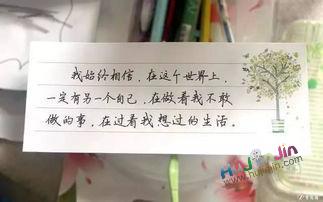 我始终相信，在这个世界上，
一定有另一个自己，在做着我不敢
做的事，在过着我想过的生活。
HuiJinJin
www.huijinjin.com